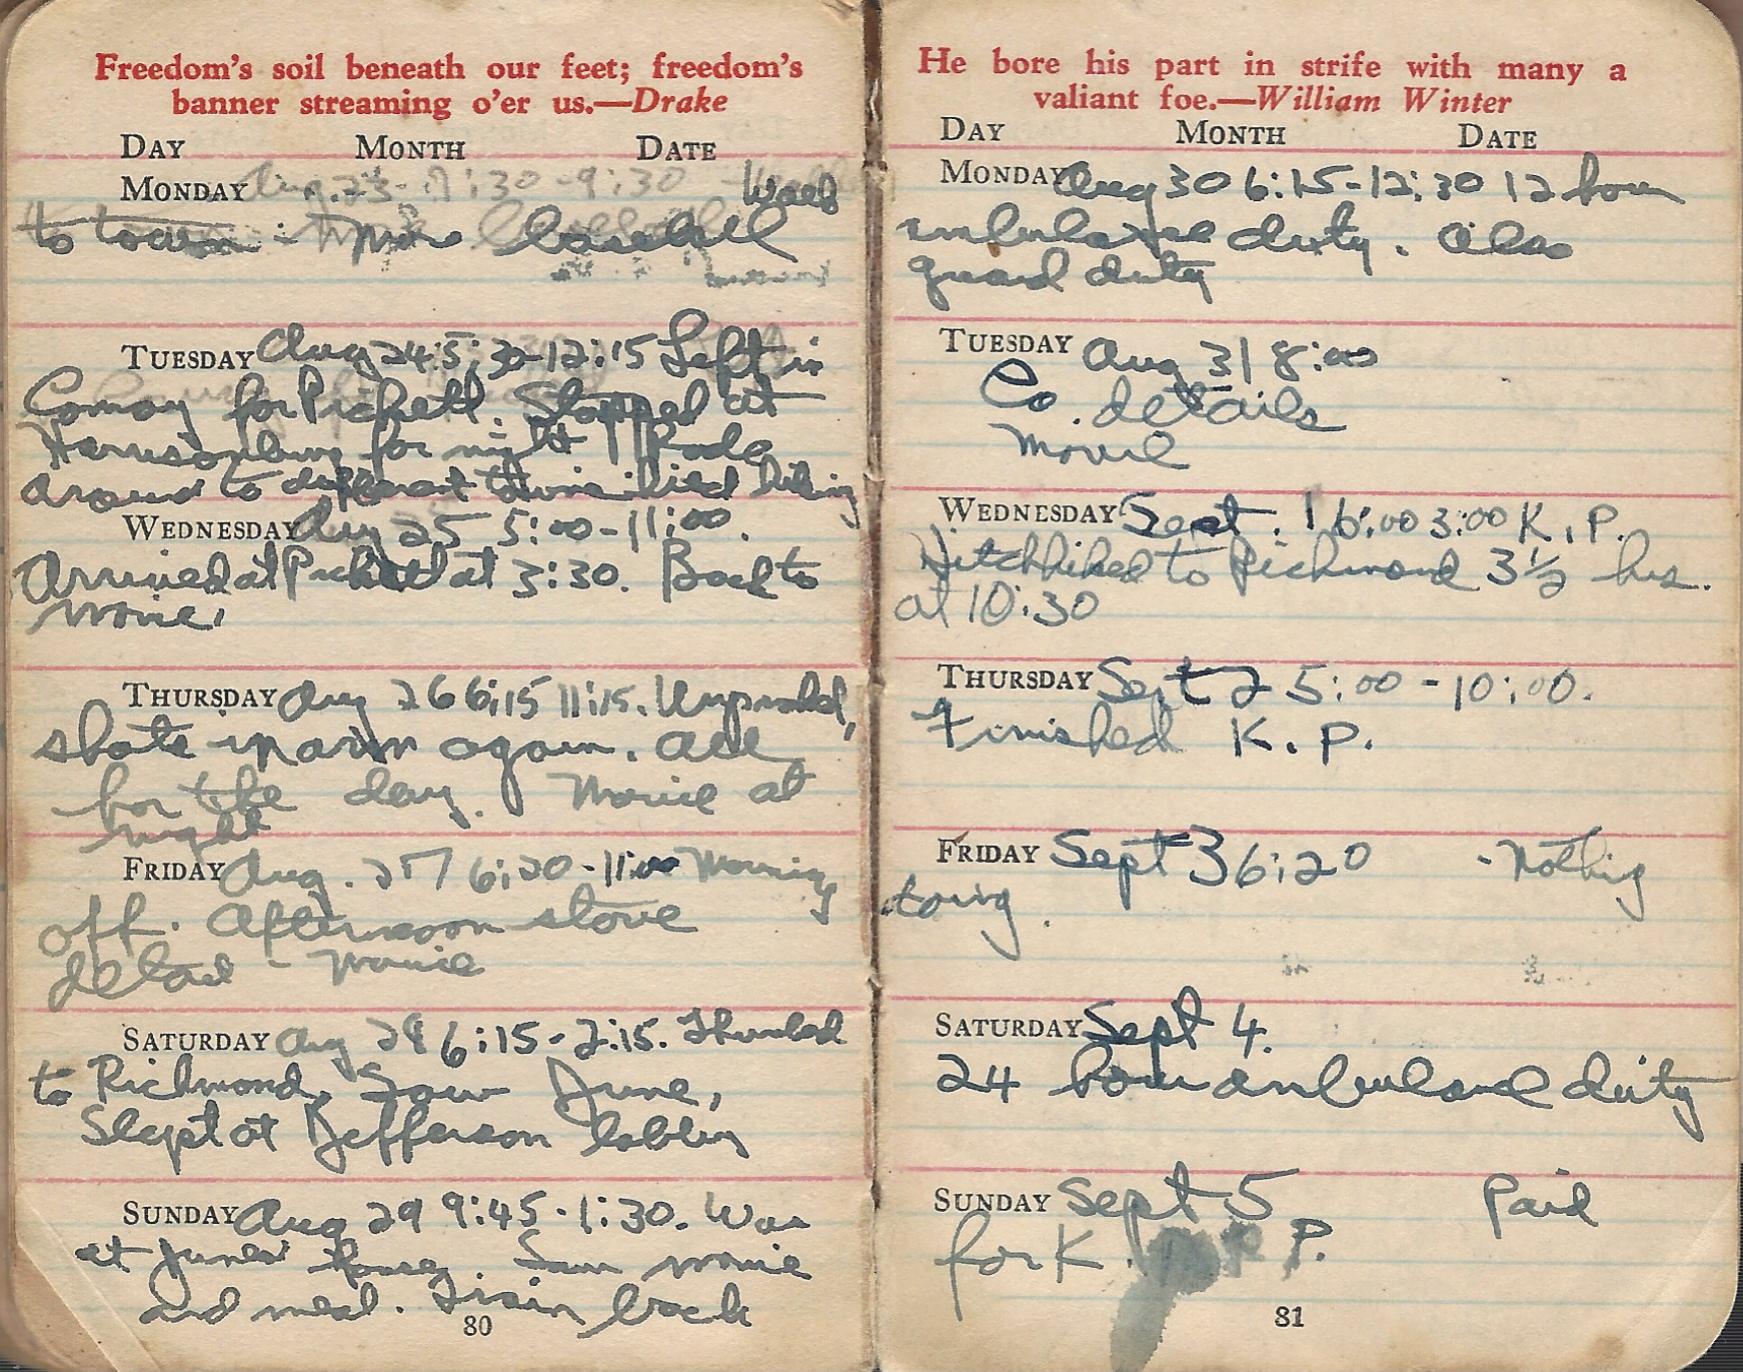 Freedom's soil beneath our feet; freedom's
banner streaming o'er us.—Drake
DAY MONTH DATE
MONDAY Aug. 23- 7:30-9:30 - Walk
to town - baseball
TUESDAY Aug 24 5:30-12:15 Left in
Convoy for Pickett. Stopped at
Harrisonburg for night Rode
around to different towns hiking
WEDNESDAY Aug 25 5:00-11:00.
Arrived at Pickett at 3:30. Back to
movie.
THURSDAY Aug 26 6:15 11:15. Unpacked,
shots in arm again. all
for the day. Movie at
night
FRIDAY Aug. 27 6:20-11:00 Morning
off. Afternoon stove
detail - movie
SATURDAY Aug 28 6:15-2:15. Thumbed
to Richmond, Saw June,
Slept at Jefferson lobby
SUNDAY Aug 29 9:45-1:30. Was
at Junes' house. Saw movie
and meal. Train back
80
He bore his part in strife with many a
valiant foe.—William Winter
DAY MONTH DATE
MONDAY Aug 30 6:15-12:30 12 hour
ambulance duty. Also
guard duty
TUESDAY Aug 31 8:00
Co. details
Movie
WEDNESDAY Sept. 1 6:00 3:00 K.P.
Hitchhiked to Richmond 3½ hrs.
at 10:30
THURSDAY Sept 2 5:00-10:00.
Finished K.P.
FRIDAY Sept 3 6:20 - Nothing
doing.
SATURDAY Sept 4.
24 hour ambulance duty
SUNDAY Sept 5 Paid
for K. P.
81